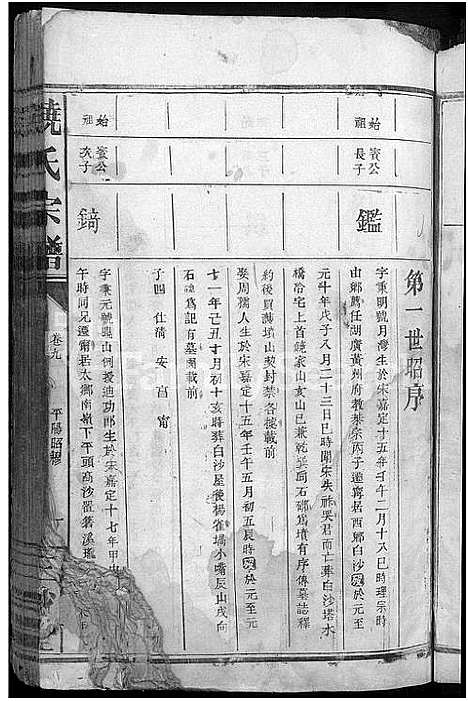 第一世昭序
始祖
賓公長子
鑑
字秉明號月灣生於宋嘉定十五年壬午二月十八巳時理宗時
由鄉薦任湖廣黃州府教授宋丙子遷甯居西鄉白沙歿於元至
元十年戊子八月二十三日巳時聞宋失祚哭君而亡葬白沙塔水
橋冶宅上首饒家山亥山巳兼乾巽同石鄉為墳有序傳墓誌釋
約後買蕩坑山契封禁各據載前
娶周孺人生於宋嘉定十五年壬午五月初五辰時歿於元至元
十一年己丑十月初十亥時葬白沙屋後楊雀塘小嘴辰山戌向
石碑為記有墓圖載前
子四 仕蒨 安 富 甯
始祖
賓公次子
錡
字秉元號龜山例授迪功郎生於宋嘉定十七年甲申
午時同兄遷甯居太鄉南嶺下平頭高沙置莕溪
饒氏宗譜
卷九
平陽昭穆